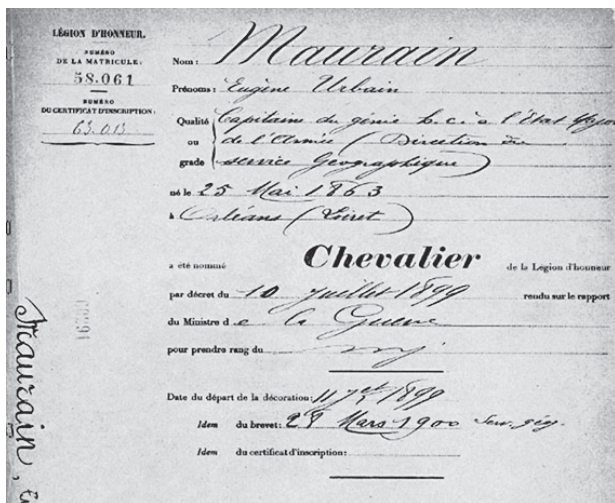 LÉGION D'HONNEUR.
NUMÉRO
DE LA MATRICULE:
58.061
NUMÉRO
DU CERTIFICAT D'INSCRIPTION:
63.013
Nom: Maurain
Prénoms: Eugène Urbain
Qualité Capitaine du génie h.c. à l'État Major
ou de l'Armée (Direction du
grade service Géographique)
né le 25 Mai 1863
à Orléans (Loiret)
a été nommé Chevalier de la Légion d'honneur
par décret du 10 juillet 1899 rendu sur le rapport
du Ministre de la Guerre
pour prendre rang du
Date du départ de la décoration: 11 1899
Idem du brevet: 28 Mars 1900 Serv. géog.
Idem du certificat d'inscription:
Maurain,